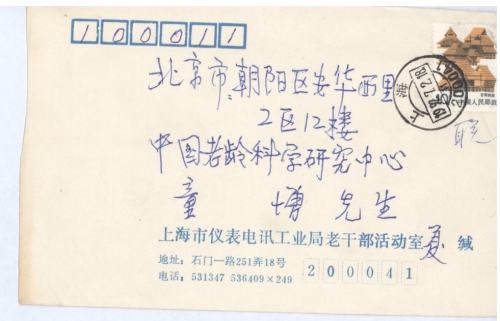 100011
北京市朝阳区安华西里
2区12楼
中国老龄科学研究中心
童 博 先生
上海市仪表电讯工业局老干部活动室 夏 缄
地址：石门一路251弄18号
电话：531347 536409×249
200041